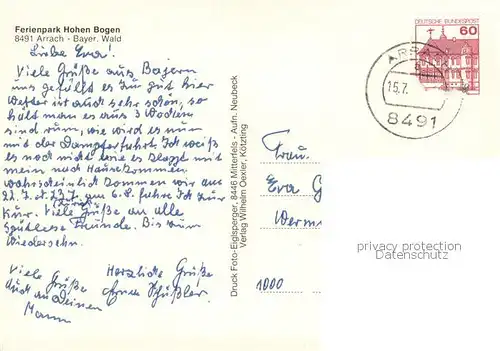 Ferienpark Hohen Bogen
8491 Arrach - Bayer. Wald
Liebe Eva!
Viele Grüße aus Bayern
uns gefällt es ja gut hier
Wetter ist auch sehr schön, so
hält man es aus 3 Wochen
sind rum, wie wird es nun
mit der Dampferfahrt. Ich weiß
es noch nicht wie es klappt mit
mein nach Hausekommen
wahrscheinlich kommen wir am
22.7. 23.7. zurück am 6.8. fahre ich zur
Kur. Viele Grüße an alle
Freunde. Bis zum
Wiedersehn.
Viele Grüße
auch an Deinen
Mann
Herzliche Grüße
Druck Foto-Eiglsperger, 8446 Mitterfels - Aufn. Neubeck
Verlag Wilhelm Oexler, Kötzting
DEUTSCHE BUNDESPOST
60
15.7.
8491
Frau
Eva G
Werm
1000
privacy protection
Datenschutz